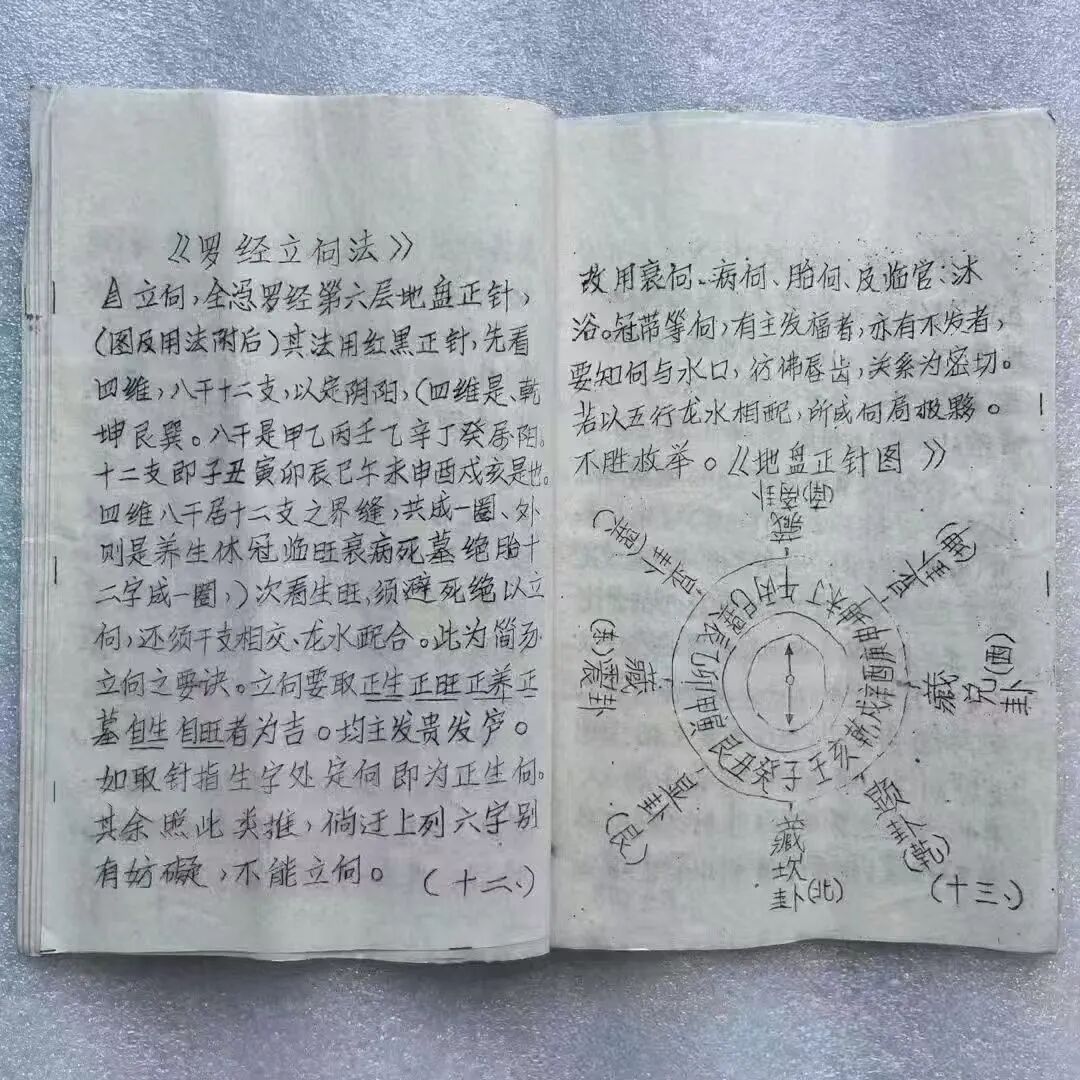 《罗经立向法》
立向，全凭罗经第六层地盘正针，
（图及用法附后）其法用红黑正针，先看
四维，八干十二支，以定阴阳，（四维是、乾
坤艮巽。八干是甲乙丙壬乙辛丁癸属阳。
十二支即子丑寅卯辰巳午未申酉戌亥是也。
四维八干居十二支之界缝，共成一圈、外
则是养生沐冠临旺衰病死墓绝胎十
二字成一圈，）次看生旺、须避死绝以立
向，还须干支相交、龙水配合。此为简易
立向之要诀。立向要取正生正旺正养正
墓自生自旺者为吉。均主发贵发户。
如取针指生字处定向即为正生向。
其余照此类推，倘迂上列六字别
有妨礙，不能立向。
（十二、）
改用衰向、病向、胎向、及临官：沐
浴。冠带等向，有主发福者，亦有不发者，
要知向与水口，彷彿唇齿，关系为密切。
若以五行龙水相配，所成向局极夥。
不胜枚举。《地盘正针图》
藏
(南)离卦
(巽)
(坤)
(东)震卦
藏
藏
兑卦(西)
(艮)
藏
坎
卦(北)
(乾)
子癸丑艮寅甲卯乙辰巽巳丙午丁未坤申庚酉辛戌乾亥壬
（十三、）